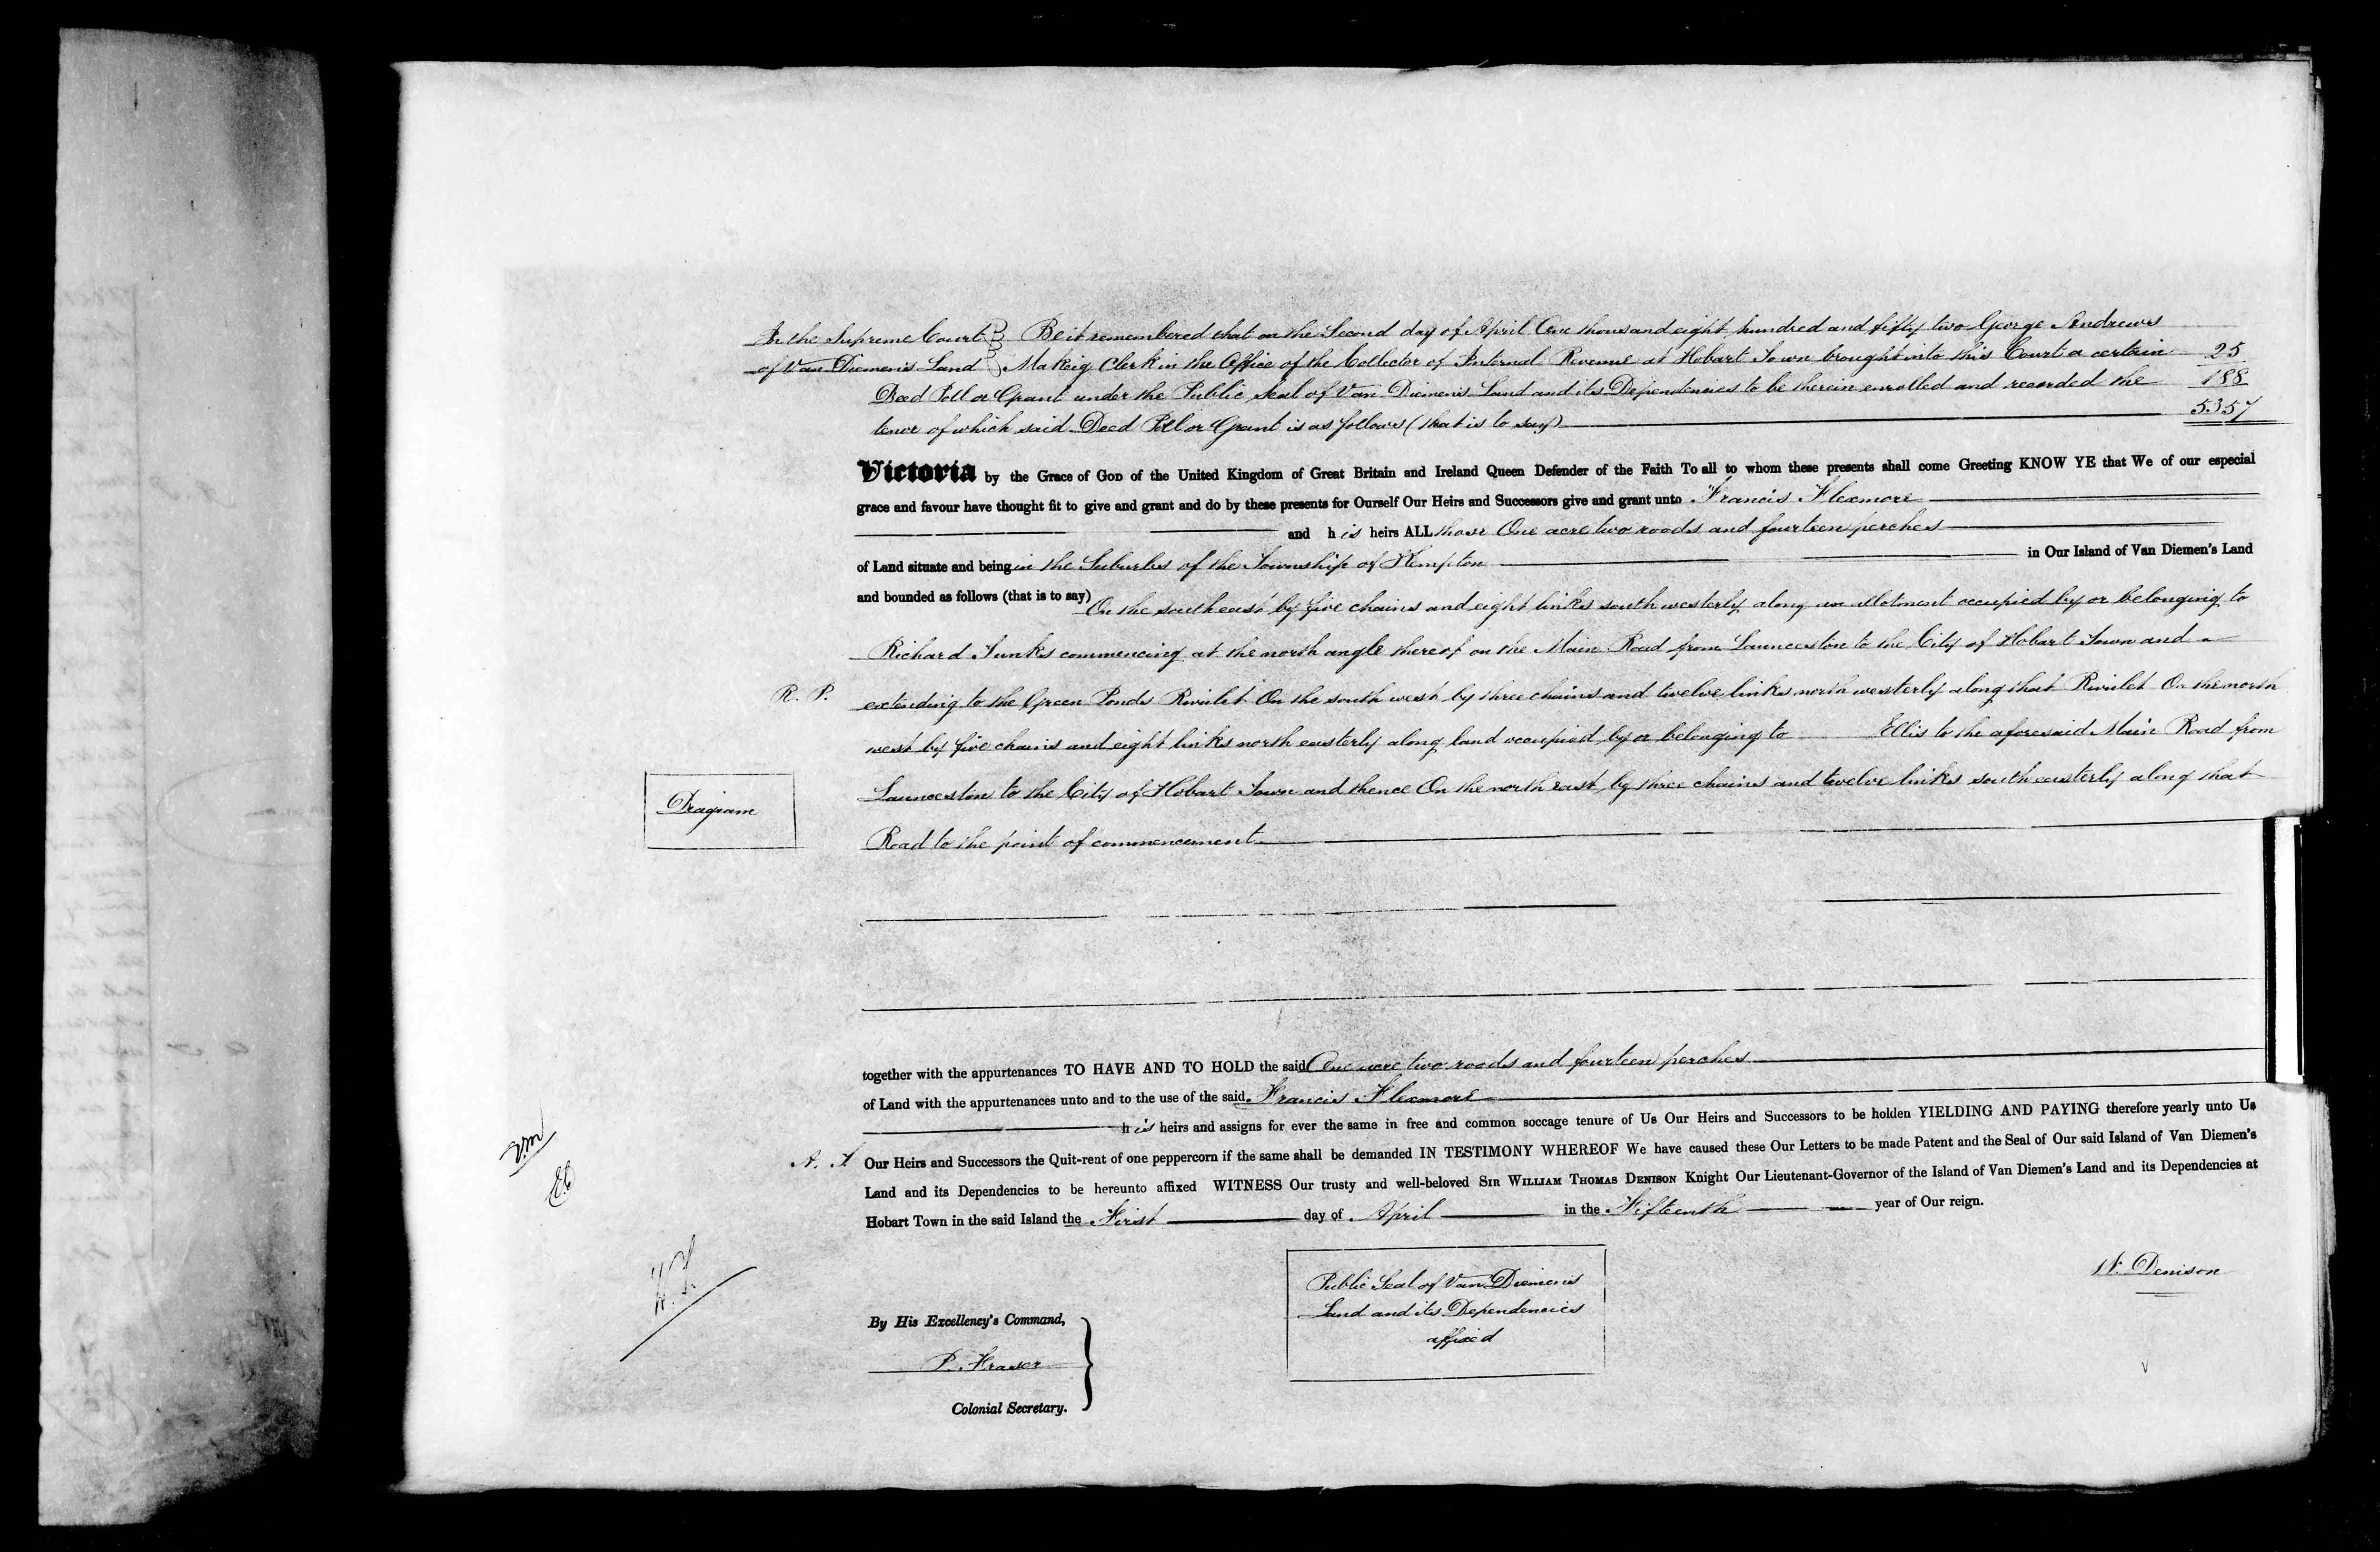 In the Supreme Court Be it remembered that on the Second day of April One thousand eight hundred and fifty two George Andrews
of Van Diemen's Land Makeig Clerk in the Office of the Collector of Internal Revenue at Hobart Town brought into this Court a certain 25
Deed Poll or Grant under the Public Seal of Van Diemen's Land and its Dependencies to be therein enrolled and recorded the 188
tenor of which said Deed Poll or Grant is as follows (that is to say) 5357
Victoria by the Grace of GOD of the United Kingdom of Great Britain and Ireland Queen Defender of the Faith To all to whom these presents shall come Greeting KNOW YE that We of our especial
grace and favour have thought fit to give and grant and do by these presents for Ourself Our Heirs and Successors give and grant unto Francis Flexmore
and his heirs ALL those One acre two roods and fourteen perches
of Land situate and being in the Suburbs of the Township of Kempton in Our Island of Van Diemen's Land
and bounded as follows (that is to say) On the south east by five chains and eight links south westerly along an allotment occupied by or belonging to
Richard Junks commencing at the north angle thereof on the Main Road from Launceston to the City of Hobart Town and
R. P. extending to the Green Ponds Rivulet On the south west by three chains and twelve links north westerly along that Rivulet On the north
west by five chains and eight links north easterly along land occupied by or belonging to Ellis to the aforesaid Main Road from
Launceston to the City of Hobart Town and thence On the north east by three chains and twelve links south easterly along that
Diagram
Road to the point of commencement
together with the appurtenances TO HAVE AND TO HOLD the said One acre two roods and fourteen perches
of Land with the appurtenances unto and to the use of the said Francis Flexmore
his heirs and assigns for ever the same in free and common soccage tenure of Us Our Heirs and Successors to be holden YIELDING AND PAYING therefore yearly unto Us
Our Heirs and Successors the Quit-rent of one peppercorn if the same shall be demanded IN TESTIMONY WHEREOF We have caused these Our Letters to be made Patent and the Seal of Our said Island of Van Diemen's
Land and its Dependencies to be hereunto affixed WITNESS Our trusty and well-beloved SIR WILLIAM THOMAS DENISON Knight Our Lieutenant-Governor of the Island of Van Diemen's Land and its Dependencies at
Hobart Town in the said Island the First day of April in the Fifteenth year of Our reign.
W. Denison
Public Seal of Van Diemen's
Land and its Dependencies
affixed
By His Excellency's Command,
P. Fraser
Colonial Secretary.